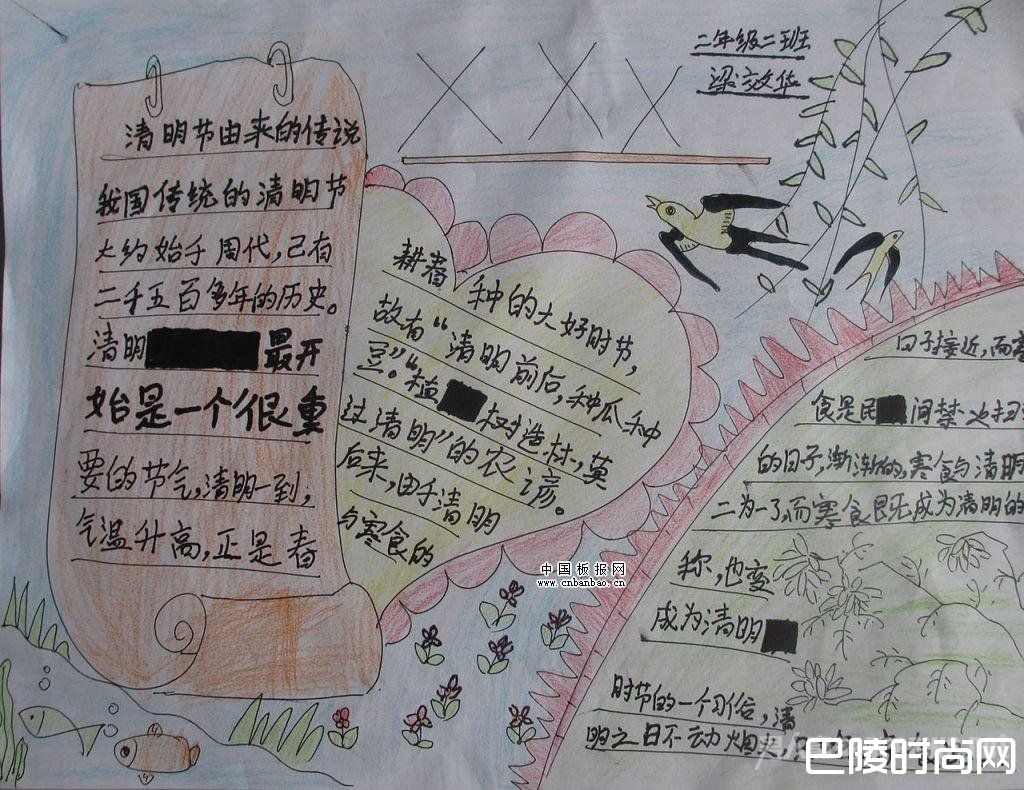 二年级二班
梁效华
XXX
清明节由来的传说
我国传统的清明节
大约始于周代,已有
二千五百多年的历史。
清明 最开
始是一个很重
要的节气,清明一到,
气温升高,正是春
耕春种的大好时节,
故有“清明前后,种瓜种
豆”。“植 树造林,莫
过清明”的农谚。
后来,由于清明
与寒食的
日子接近,而寒
食是民 间禁火扫
的日子,渐渐的,寒食与清明
二为一了,而寒食既成为清明的
称,也变
成为清明
时节的一个习俗,清
明之日不动烟火,只
中国板报网
www.cnbanbao.cn
巴陵时尚网